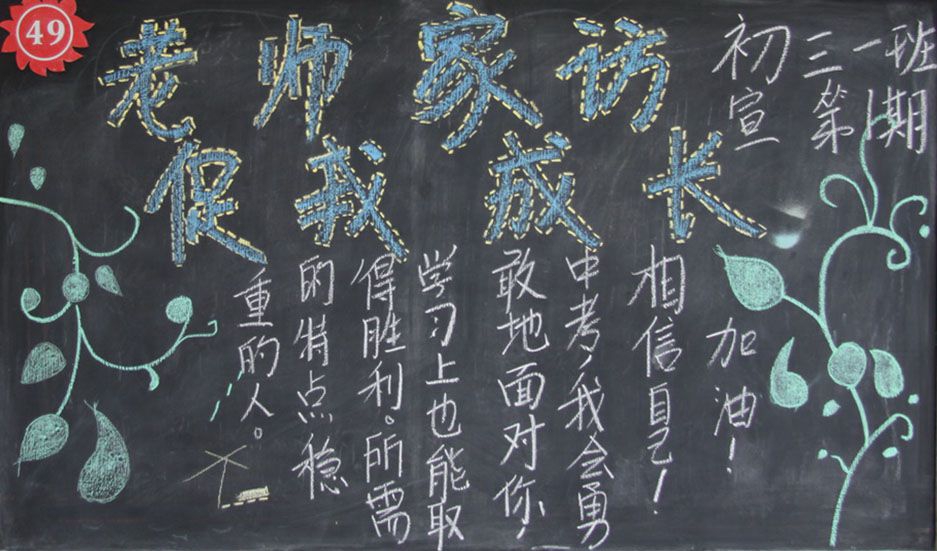 49
老师家访
促我成长
初三一班
宣第1期
加油！
相信自己！
中考，我会勇
敢地面对你，
学习上也能取
得胜利。所需
的特点稳
重的人。